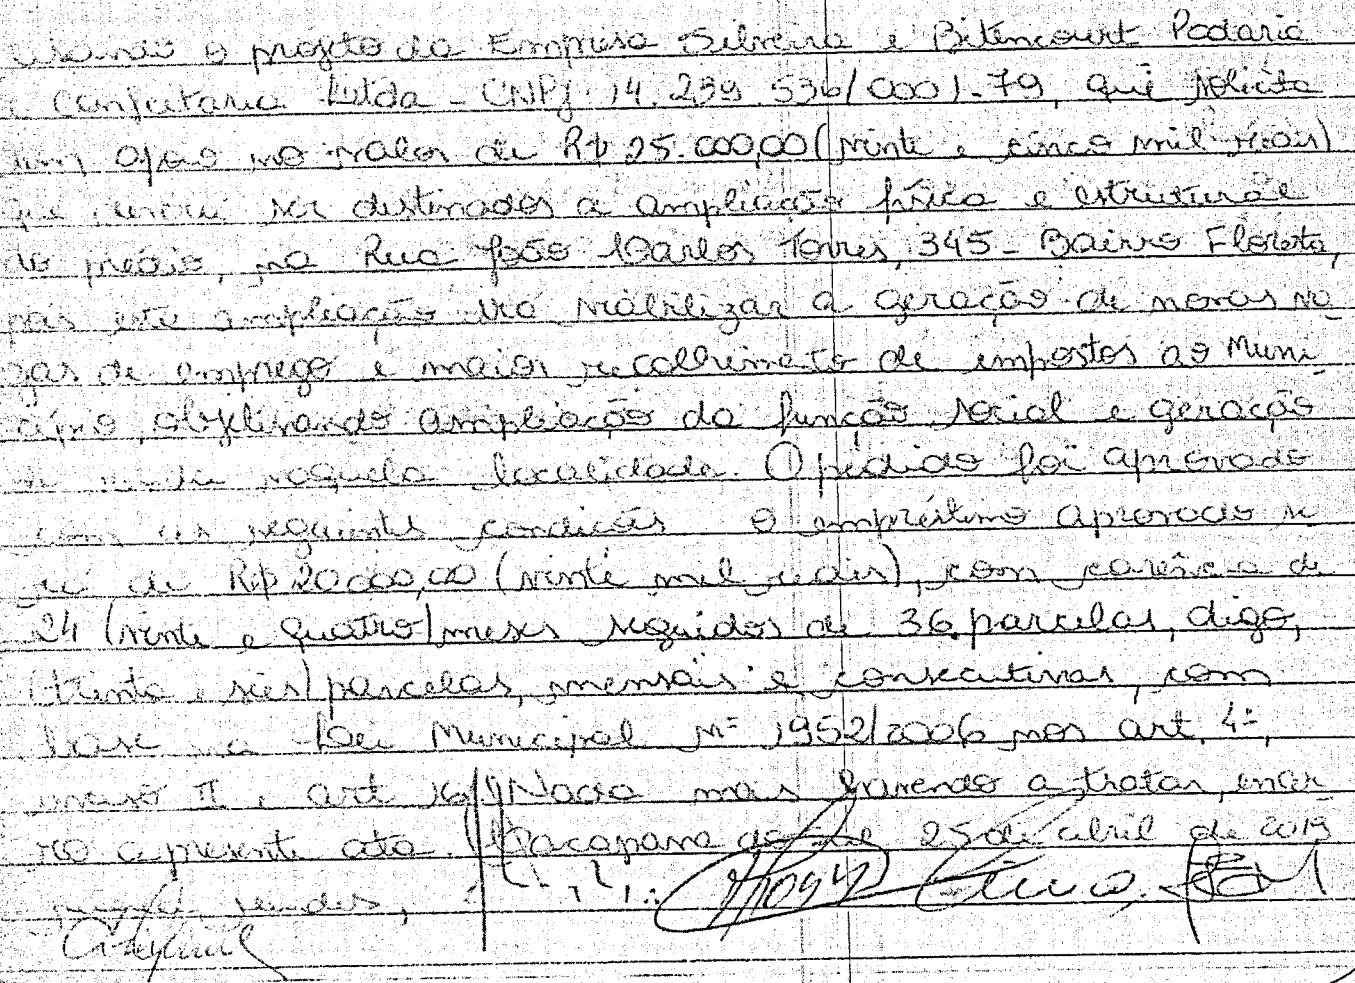 lisando o projeto da Empresa Silveira e Bitencourt Padaria
e Confeitaria Ltda - CNPJ 14.239.536/0001-79, que solicita
um apoio no valor de R$ 25.000,00 (vinte e cinco mil reais)
que deverá ser destinados a ampliação física e estrutural
do prédio, na Rua João Carlos Torres, 345 - Bairro Floresta,
pois esta ampliação irá viabilizar a geração de novas va
gas de emprego e maior recolhimento de impostos ao Muni
cípio, objetivando ampliação da função social e geração
de renda naquela localidade. O pedido foi aprovado
com as seguintes condições o empréstimo aprovado se
rá de R$ 20.000,00 (vinte mil reais), com carência de
24 (vinte e quatro) meses seguidos de 36 parcelas, digo,
(trinta e seis) parcelas, mensais e consecutivas, com
base na Lei Municipal nº 1952/2006 nos art. 4º,
inciso II e art 16. Nada mais havendo a tratar, encer
ro a presente ata. do Sul 25 de abril de 2019